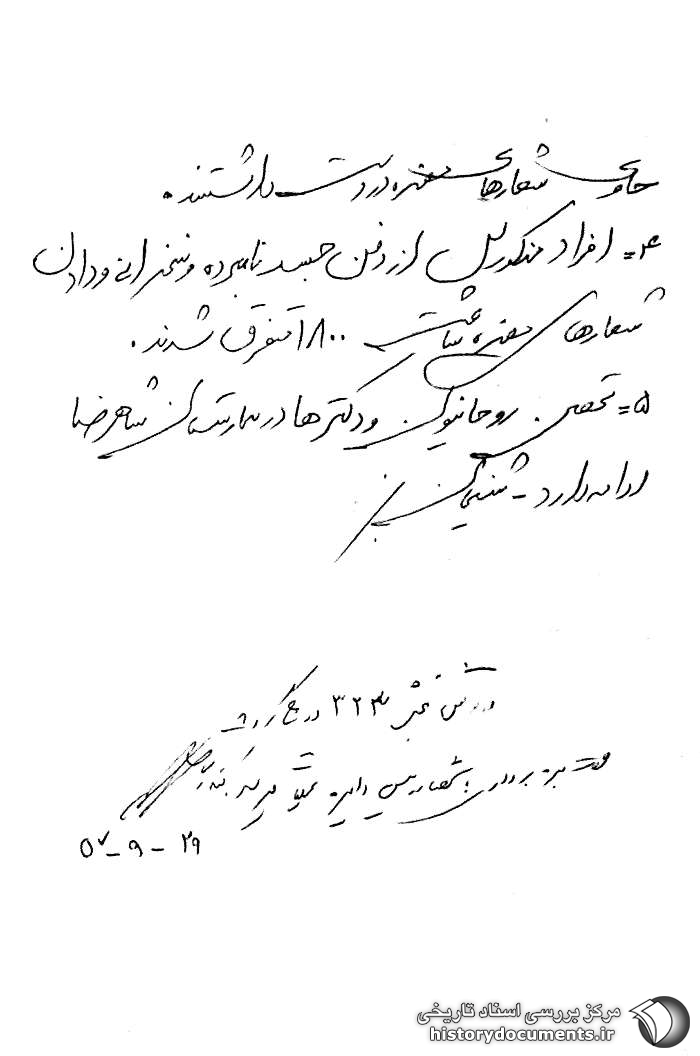 حاوی شعارهای مضره در دست داشتند.
۴= افراد مذکور پس از دفن جسد نامبرده و سخنرانی و دادن
شعارهای مضره ساعت ۱۸۰۰ متفرق شدند.
۵= تحصن روحانیون و دکترها در بیمارستان شاهرضا
ادامه دارد - شیبانی
در بخش ۳۲۳ درج گردید
دایره
۲۹-۹-۵۷
مرکز بررسی اسناد تاریخی
historydocuments.ir